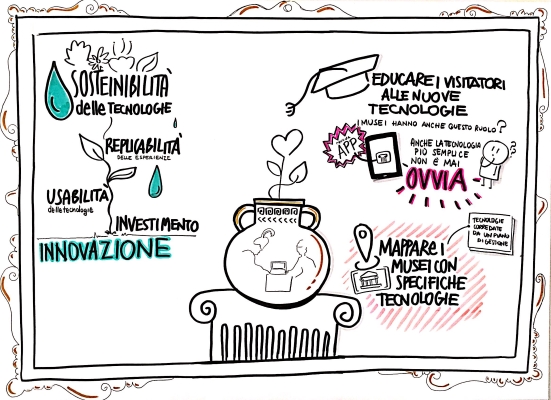 SOSTEINIBILITÀ
delle TECNOLOGIE
REPLICABILITÀ
DELLE ESPERIENZE
USABILITÀ
delle tecnologie
INVESTIMENTO
INNOVAZIONE
EDUCARE I VISITATORI
ALLE NUOVE
TECNOLOGIE
I MUSEI HANNO ANCHE QUESTO RUOLO?
APP
ANCHE LA TECNOLOGIA
PIÙ SEMPLICE
NON È MAI
OVVIA
TECNOLOGIE
CORREDATE
DA UN PIANO
DI GESTIONE
MAPPARE I
MUSEI CON
SPECIFICHE
TECNOLOGIE